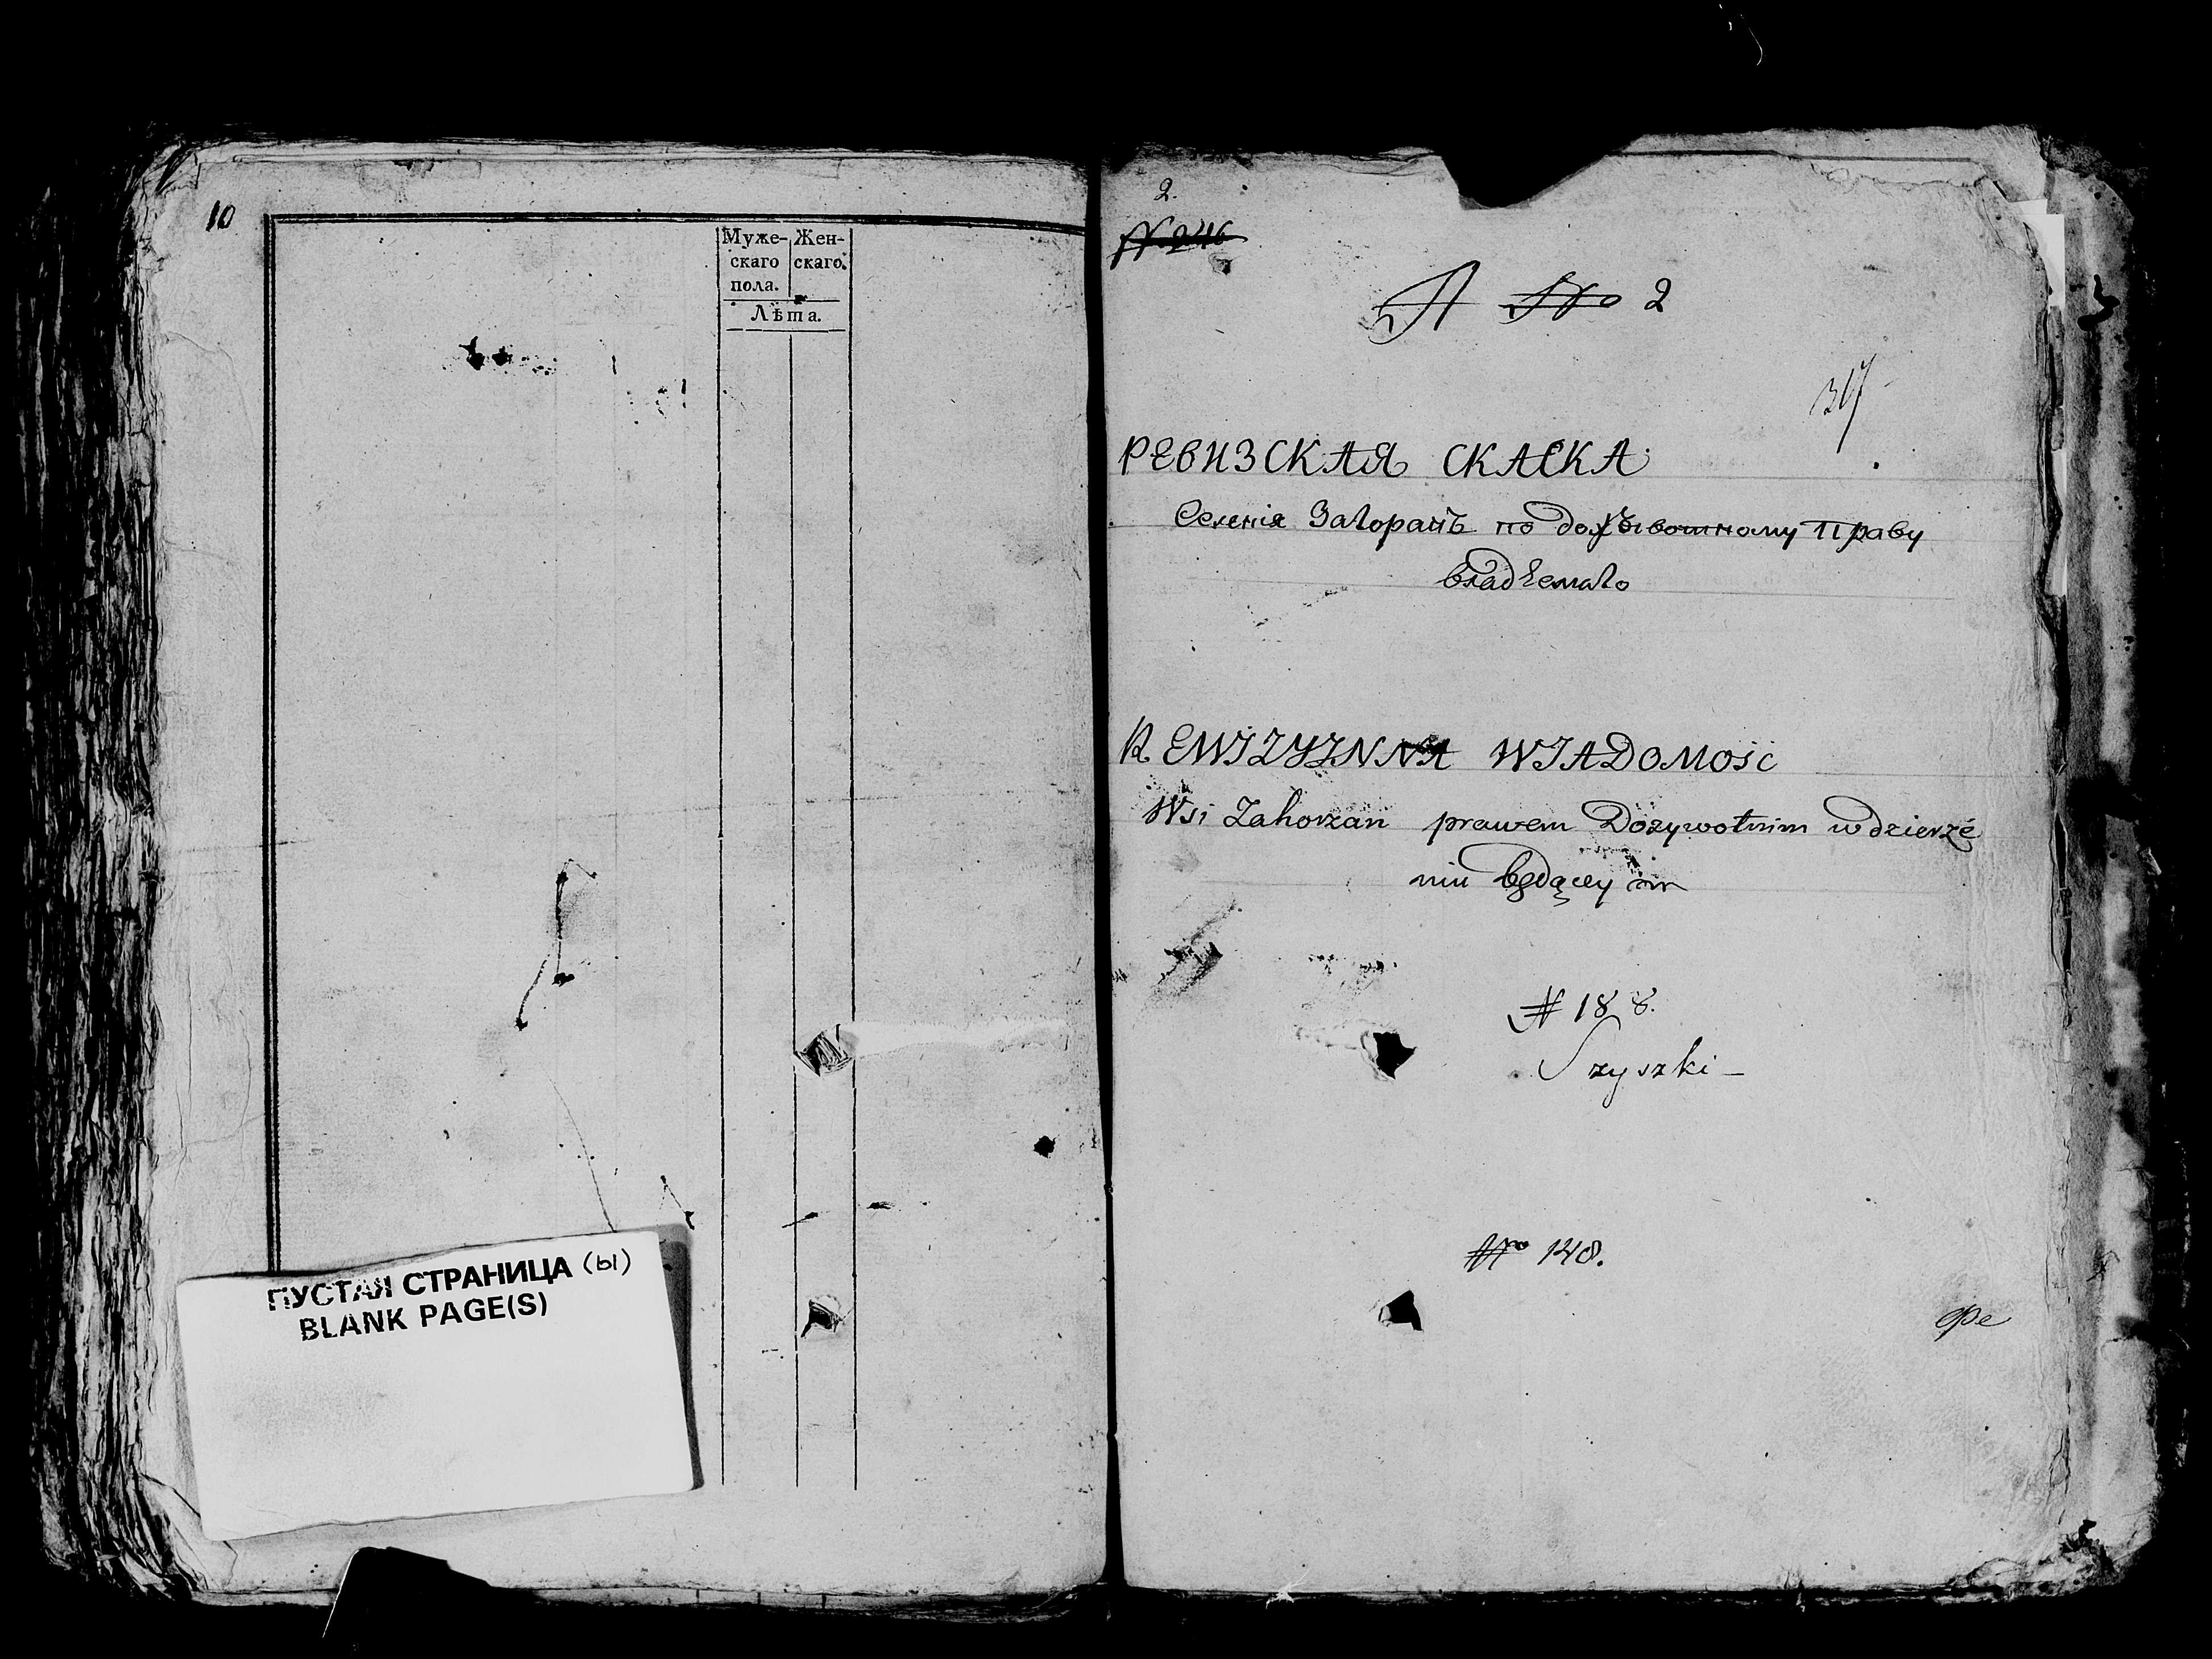 10
Муже-
скаго
пола.
Жен-
скаго.
Лѣта.
ПУСТАЯ СТРАНИЦА (ы)
BLANK PAGE(S)
2.
N 246
A No 2
317
РЕВИЗСКАЯ СКАСКА
Селенія Загоранъ по дожывотному праву
владѣемаго
REWIZYINNA WIADOMOSĆ
Wsi Zahorzan prawem Dożywotnim w dzierżé
niu będącey
N 188.
Szyszki -
No 148.